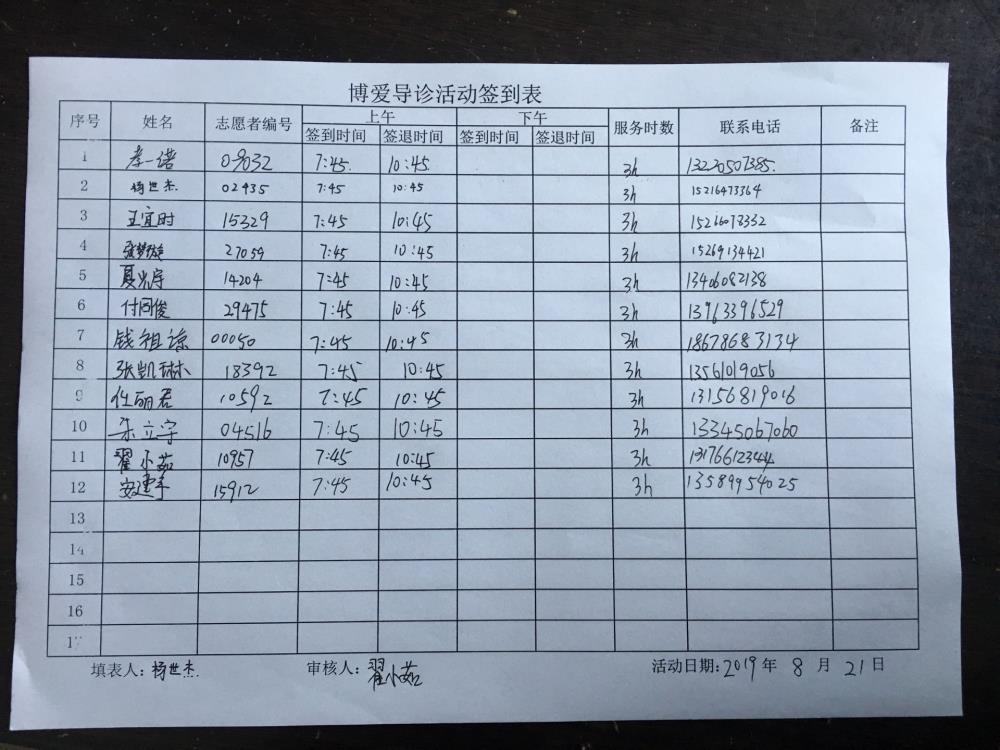 博爱导诊活动签到表
序号 姓名 志愿者编号 上午 下午 服务时数 联系电话 备注
签到时间 签退时间 签到时间 签退时间
1 李一诺 09032 7:45 10:45 3h 13220507385
2 杨世杰 02435 7:45 10:45 3h 15216473364
3 王宜时 15329 7:45 10:45 3h 15266078332
4 27059 7:45 10:45 3h 15269134421
5 夏光宇 14204 7:45 10:45 3h 13406082138
6 付同俊 29475 7:45 10:45 3h 13963396529
7 钱祖谅 00050 7:45 10:45 3h 18678683134
8 张凯琳 18392 7:45 10:45 3h 13561019056
9 任丽君 10592 7:45 10:45 3h 13156819016
10 朱立宇 04516 7:45 10:45 3h 13345067060
11 翟小茹 10957 7:45 10:45 3h 13176612344
12 安建 15912 7:45 10:45 3h 13589954025
13
14
15
16
17
填表人: 杨世杰 审核人: 翟小茹 活动日期: 2019 年 8 月 21 日